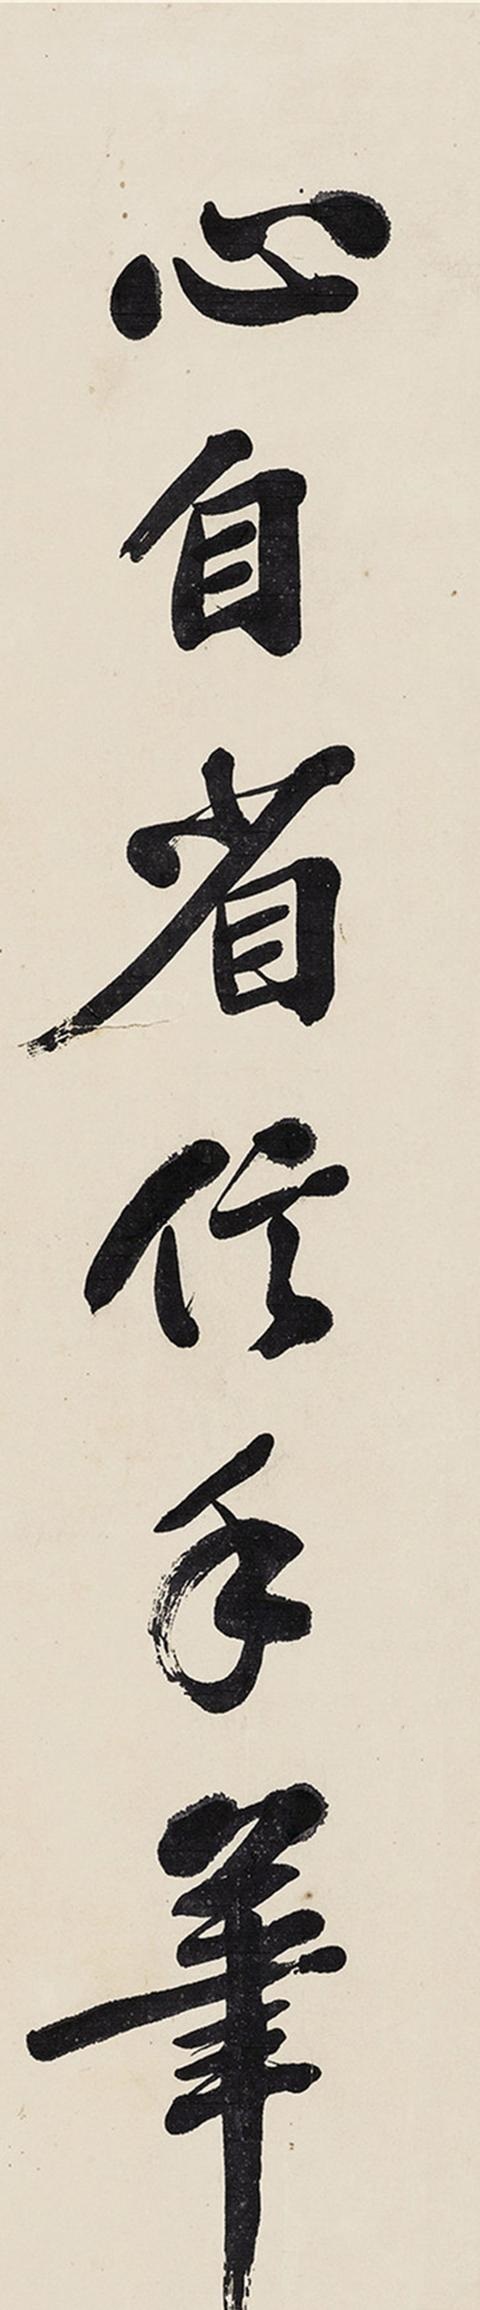 心自省信手筆